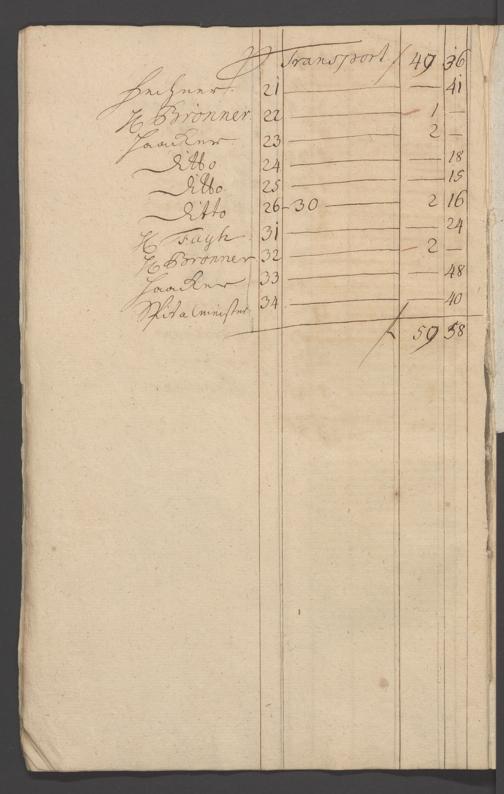 Transport / 49 36
Hechner 21 — — 41
H. Brönner 22 — 1 —
Haacker 23 — 2 —
Ditto 24 — — 18
Ditto 25 — — 15
Ditto 26-30 — 2 16
H Fayh 31 — — 24
H Brönner 32 — 2 —
Haacker 33 — — 48
Spitalmeister 34 — — 40
59 58